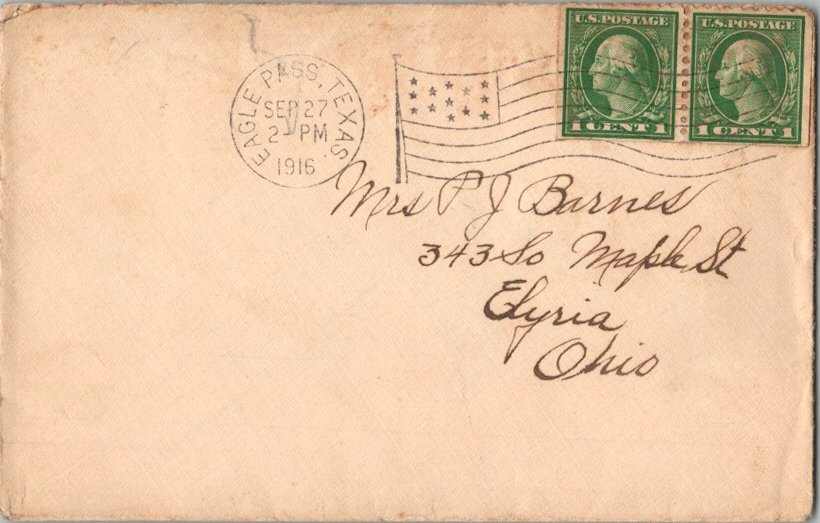 U.S. POSTAGE
1 CENT 1
U.S. POSTAGE
1 CENT 1
EAGLE PASS, TEXAS.
SEP 27
2- PM
1916
Mrs P J Barnes
343 So Maple St
Elyria
Ohio